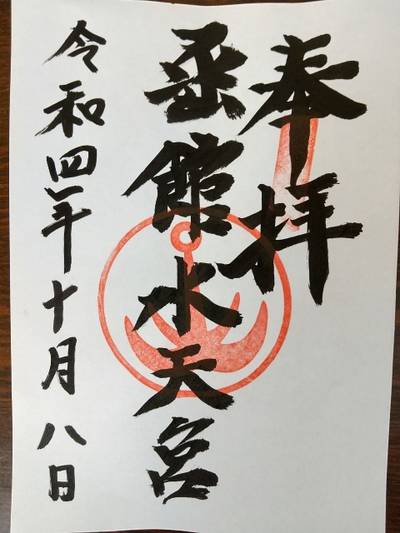 奉拝
函館水天宮
令和四年十月八日